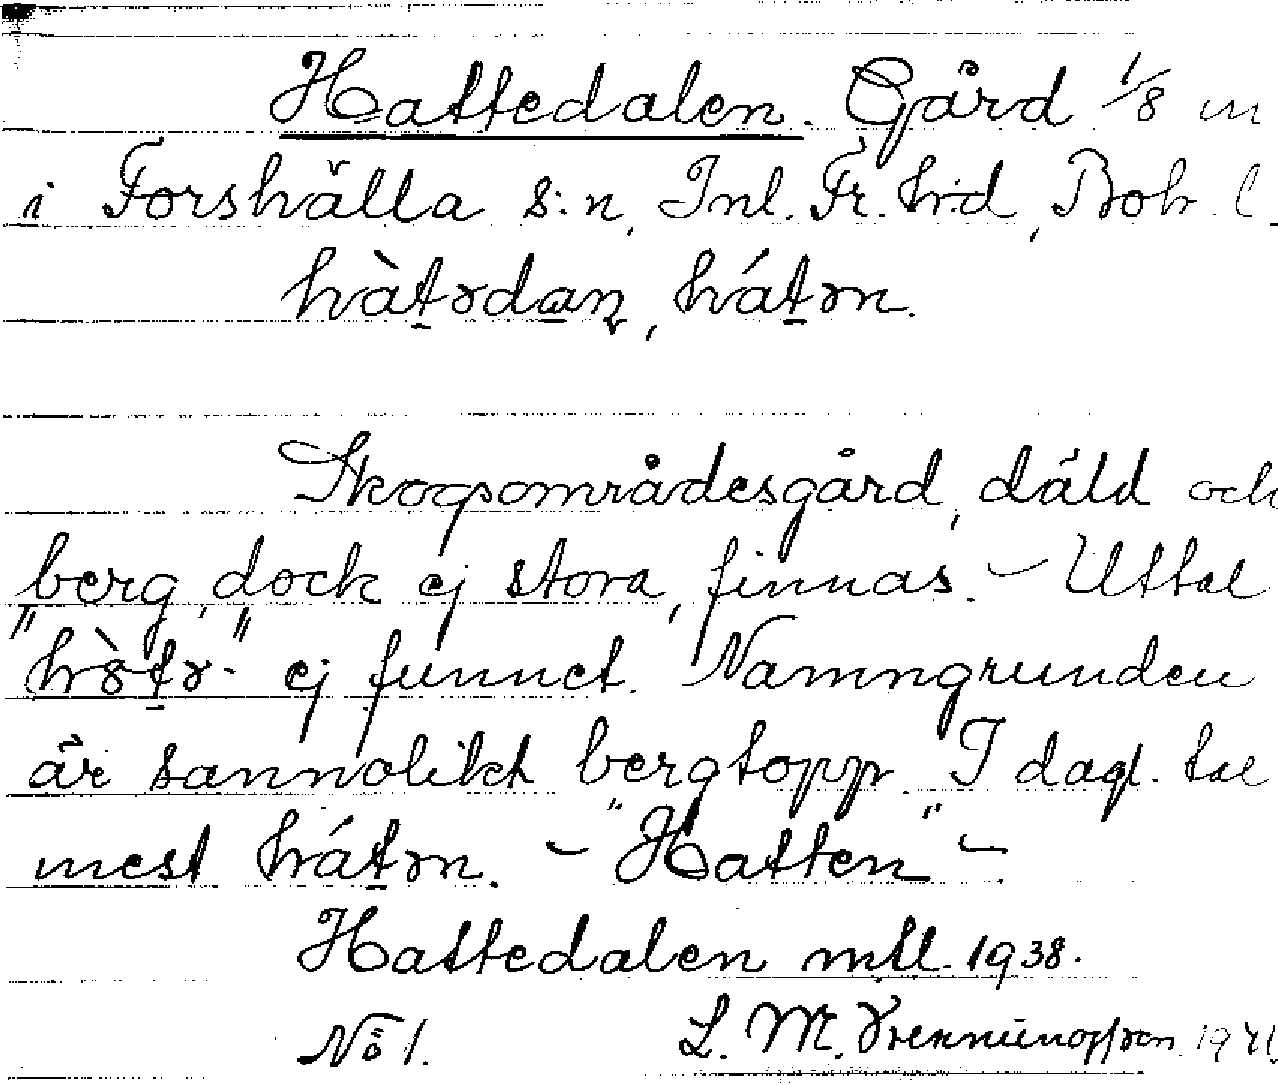 Hattedalen. Gård 1/8 m
i Forshälla s:n, Inl. Fr. h:d, Boh. l.
hàtədan, hátən.
Skogsområdesgård, däld och
berg, dock ej stora, finnas. – Uttal
"hòtə-" ej funnet. Namngrunden
är sannolikt bergtopp. I dagl. tal
mest hátən. – "Hatten" –
Hattedalen mtl. 1938.
No 1. L. M. 1941.